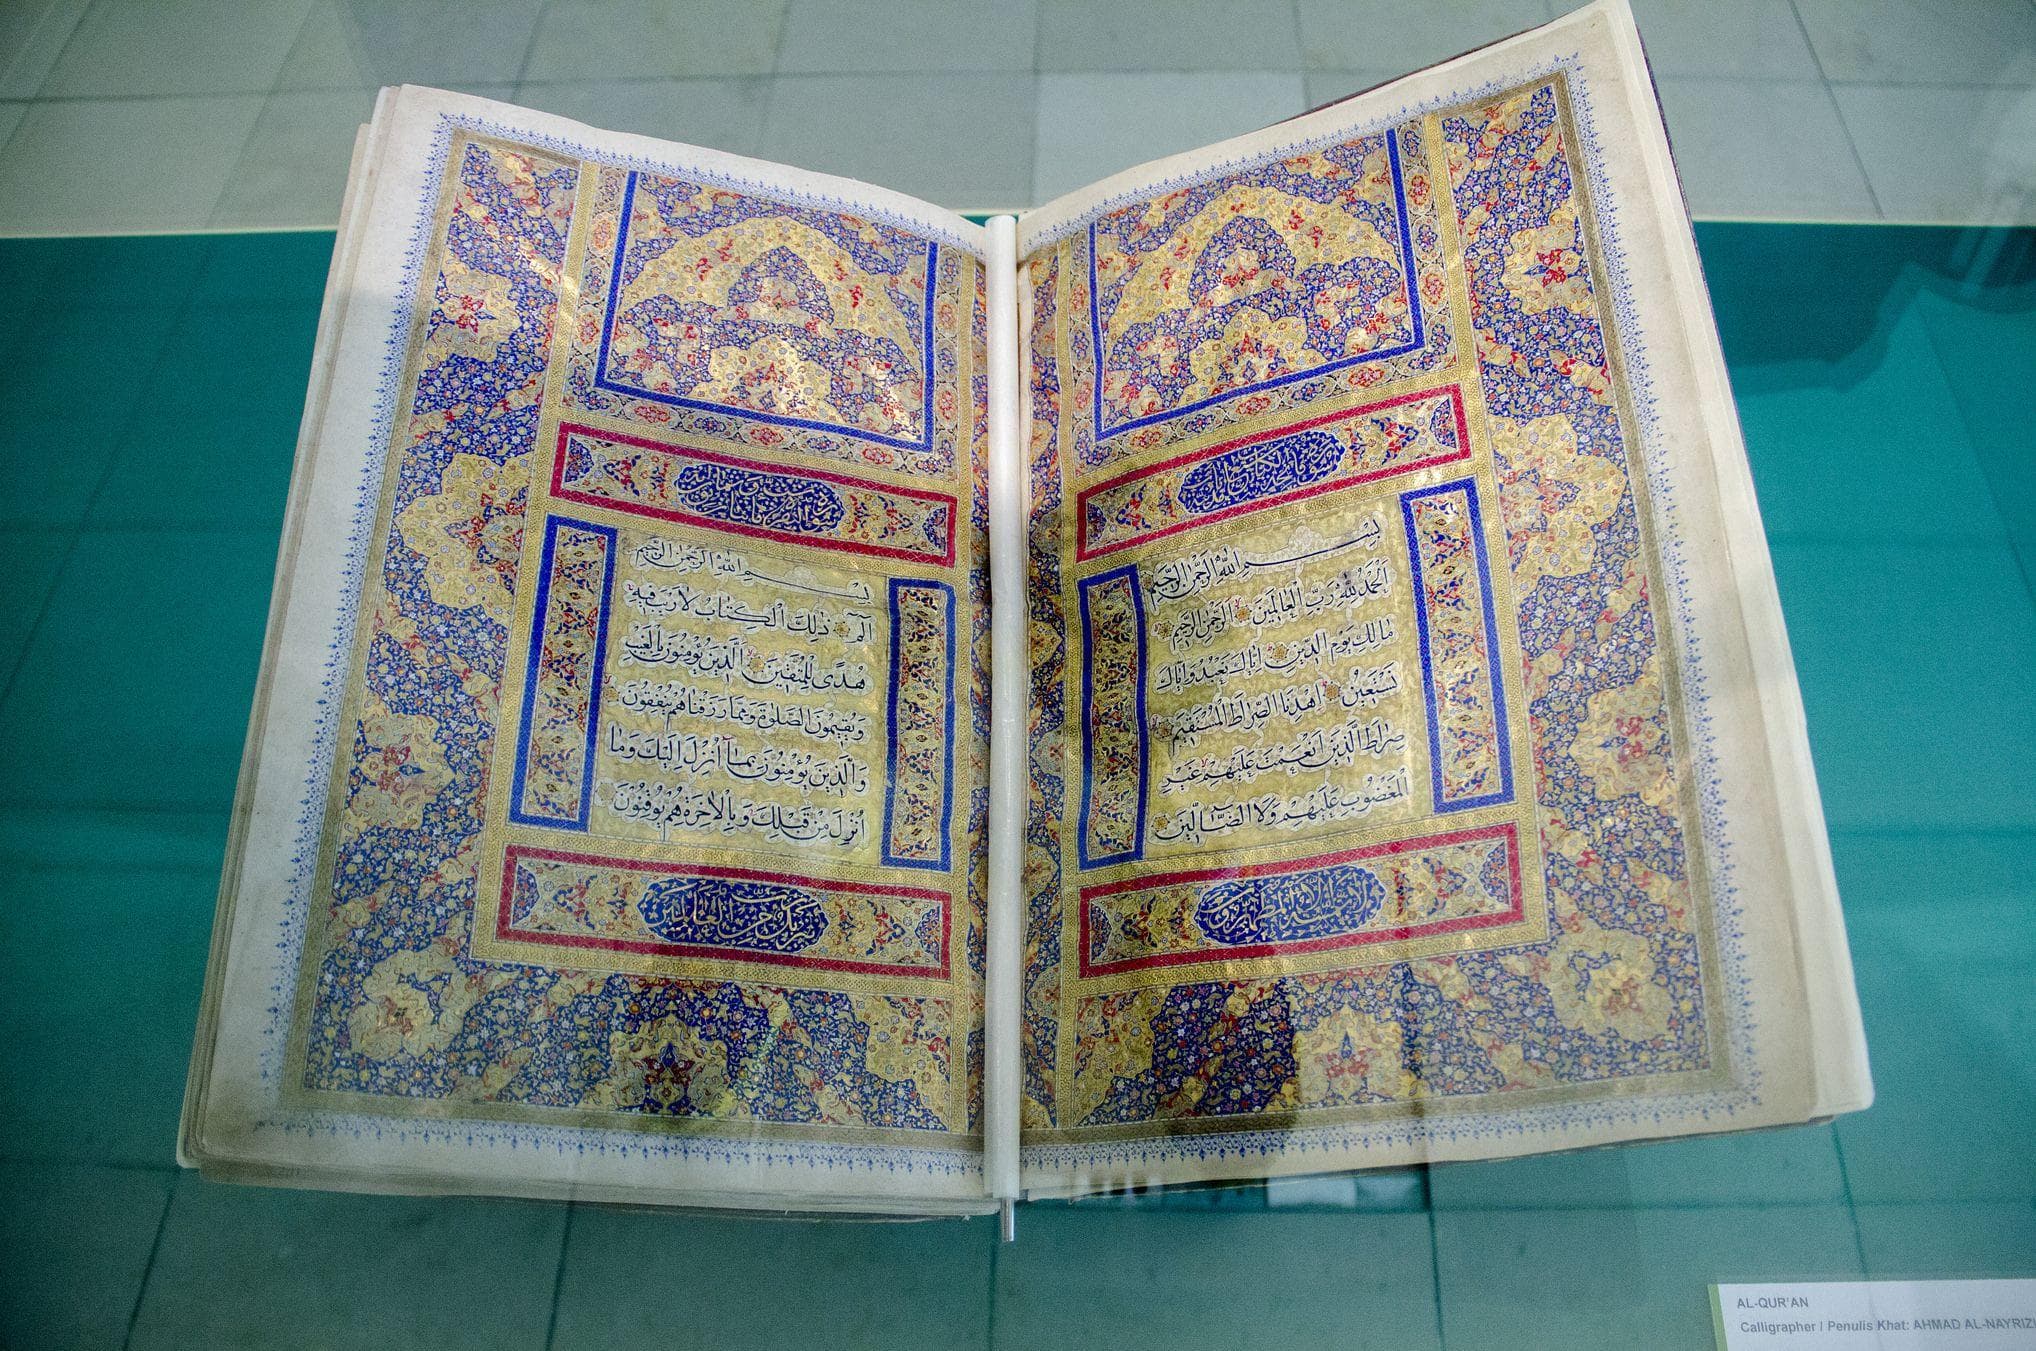 بِسْمِ اللهِ الرَّحْمٰنِ الرَّحِيمِ
اَلْحَمْدُ لِلّٰهِ رَبِّ الْعَالَمِينَ الرَّحْمٰنِ الرَّحِيمِ
مَالِكِ يَوْمِ الدِّينِ اِيَّاكَ نَعْبُدُ وَاِيَّاكَ
نَسْتَعِينُ اِهْدِنَا الصِّرَاطَ الْمُسْتَقِيمَ
صِرَاطَ الَّذِينَ اَنْعَمْتَ عَلَيْهِمْ غَيْرِ
الْمَغْضُوبِ عَلَيْهِمْ وَلَا الضَّالِّينَ
لا يمسه الا المطهرون
بِسْمِ اللهِ الرَّحْمٰنِ الرَّحِيمِ
الٓمٓ ذٰلِكَ الْكِتَابُ لَا رَيْبَ فِيهِ
هُدًى لِلْمُتَّقِينَ اَلَّذِينَ يُؤْمِنُونَ بِالْغَيْبِ
وَيُقِيمُونَ الصَّلٰوةَ وَمِمَّا رَزَقْنَاهُمْ يُنْفِقُونَ
وَالَّذِينَ يُؤْمِنُونَ بِمَآ اُنْزِلَ اِلَيْكَ وَمَا
اُنْزِلَ مِنْ قَبْلِكَ وَبِالْاٰخِرَةِ هُمْ يُوقِنُونَ
تنزيل من رب العالمين
AL-QUR'AN
Calligrapher / Penulis Khat: AHMAD AL-NAYRIZI